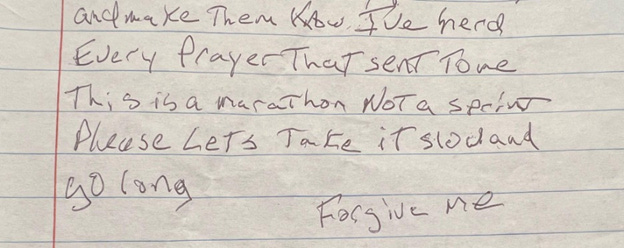 and make Them Know. I've herd
Every Prayer That sent To me
This is a marathon Not a sprint
Please Lets Take it slow and
go long
Forgive Me